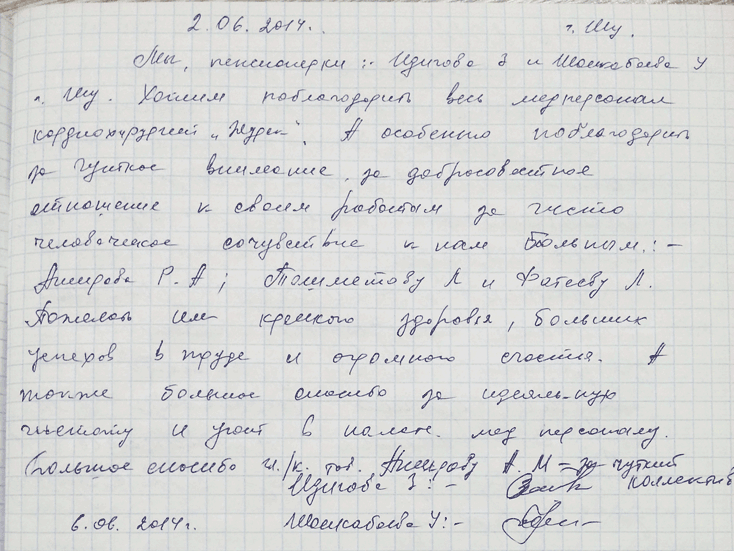 2.06.2014г. г. Шу.
Мы, пенсионерки :- Идигова З и Шоикабаева У
г. Шу. Хотим поблагодарить весь медперсонал
кардиохирургий „Жүрек". А особенно поблагодарить
за чуткое внимание, за добросовестное
отношение к своим работам за чисто
человеческое сочувствие к нам больным.:-
Аширова Р.А; Толиметову Л и Фатееву Л.
Пожелать им крепкого здоровья, больших
успехов в труде и огромного счастья. А
также большое спасибо за идеяльную
чистоту и уют в палат. мед персоналу.
Большое спасибо тов. Аширову А.М – за чуткий
Идигова З :- коллектив
6.06.2014г. Шоикабаева У:-